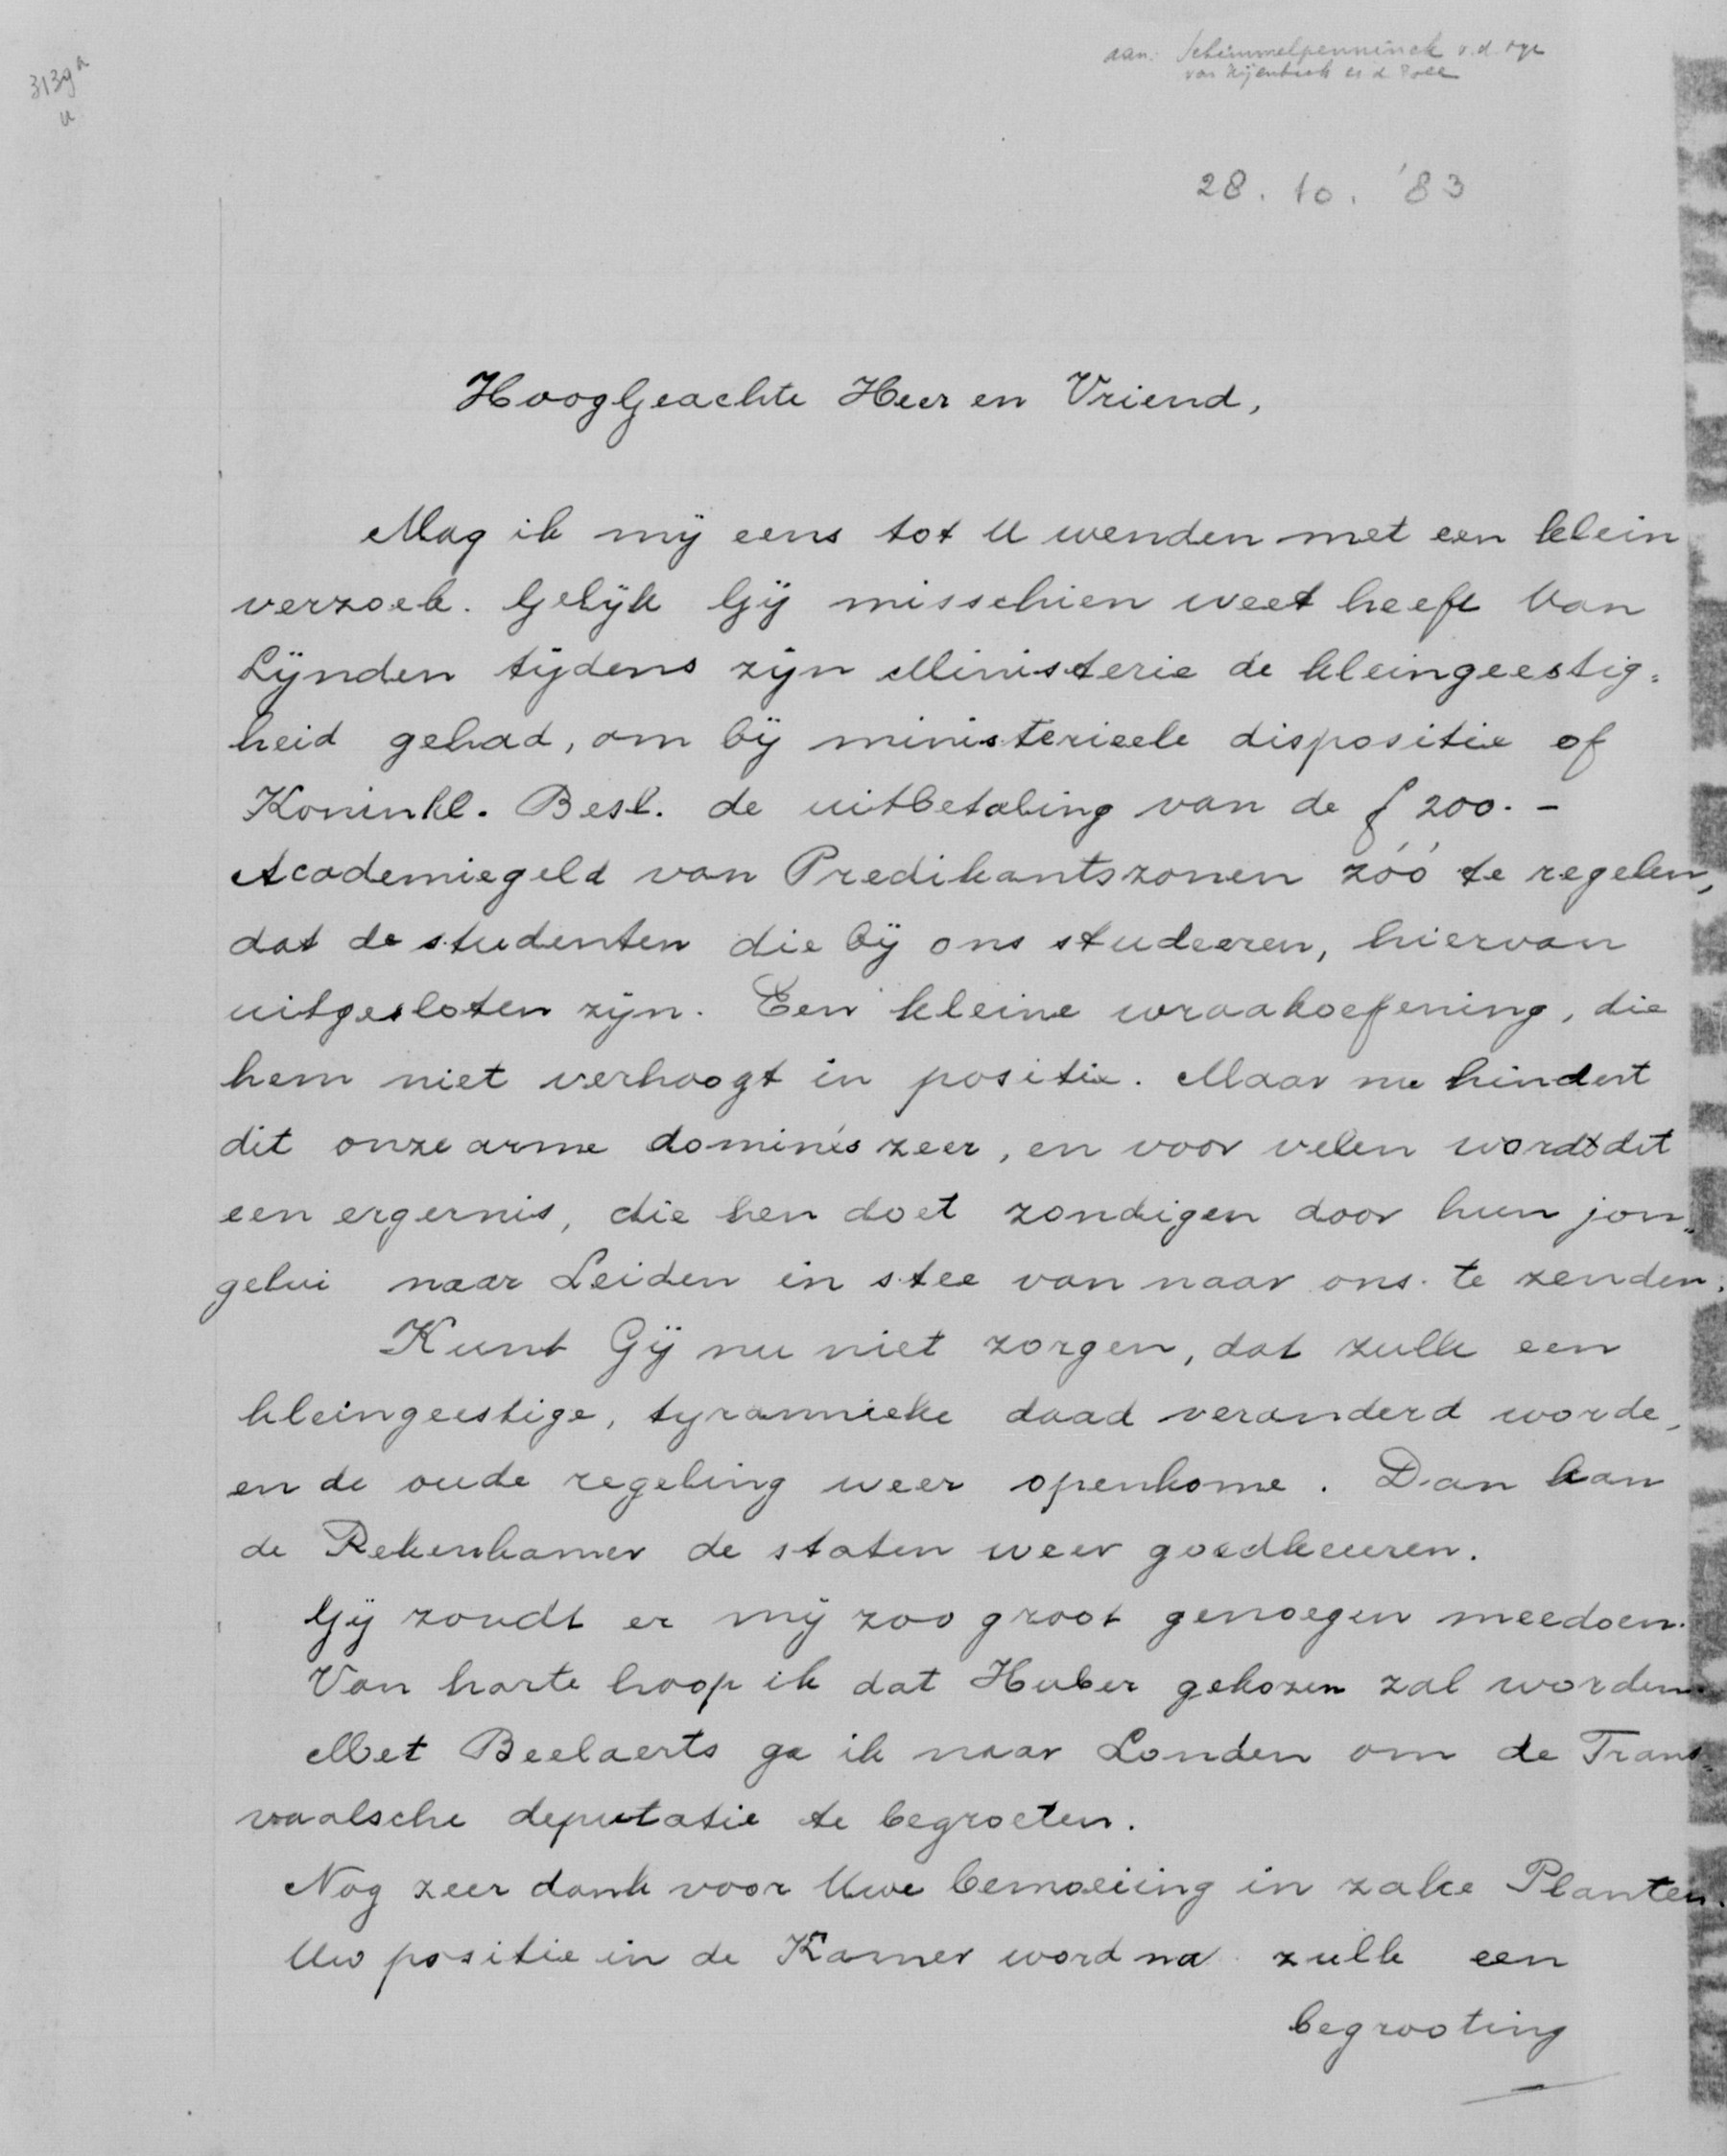 3139a
aan: Schimmelpenninck v.d. Oye
van Nijenbeek en d Poll
28. 10. '83
HoogGeachte Heer en Vriend,
Mag ik mij eens tot U wenden met een klein
verzoek. Gelijk Gij misschien weet heeft Van
Lijnden tijdens zijn Ministerie de kleingeestig=
heid gehad, om bij ministerieele dispositie of
Koninkl. Besl. de uitbetaling van de f 200.-
Academiegeld van Predikantszonen zóó te regelen,
dat de studenten die bij ons studeeren, hiervan
uitgesloten zijn. Een kleine wraakoefening, die
hem niet verhoogt in positie. Maar nu hindert
dit onze arme dominés zeer, en voor velen wordt dit
een ergernis, die hen doet zondigen door hun jon=
gelui naar Leiden in stee van naar ons te zenden.
Kunt Gij nu niet zorgen, dat zulk een
kleingeestige, tyrannieke daad veranderd worde,
en de oude regeling weer openkome. Dan kan
de Rekenkamer de staten weer goedkeuren.
Gij zoudt er mij zoo groot genoegen meedoen.
Van harte hoop ik dat Huber gekozen zal worden.
Met Beelaerts ga ik naar Londen om de Trans=
vaalsche deputatie te begroeten.
Nog zeer dank voor Uwe bemoeiing in zake Planten.
Uw positie in de Kamer word na zulk een
begrooting